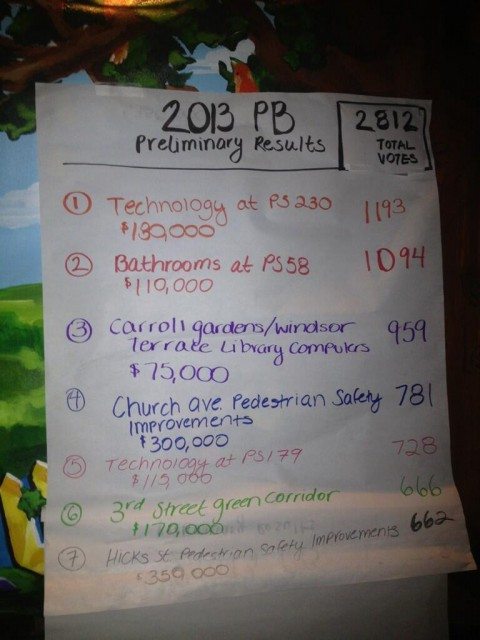 2013 PB
Preliminary Results
2812
TOTAL
VOTES
① Technology at PS 230 1193
$180,000
② Bathrooms at PS58 1094
$110,000
③ Carroll gardens/windsor 959
Terrace Library Computers
$75,000
④ Church Ave. Pedestrian Safety 781
Improvements
$300,000
⑤ Technology at PS179 728
$115,000
⑥ 3rd Street green corridor 666
$170,000
⑦ Hicks St. Pedestrian Safety Improvements 662
$350,000